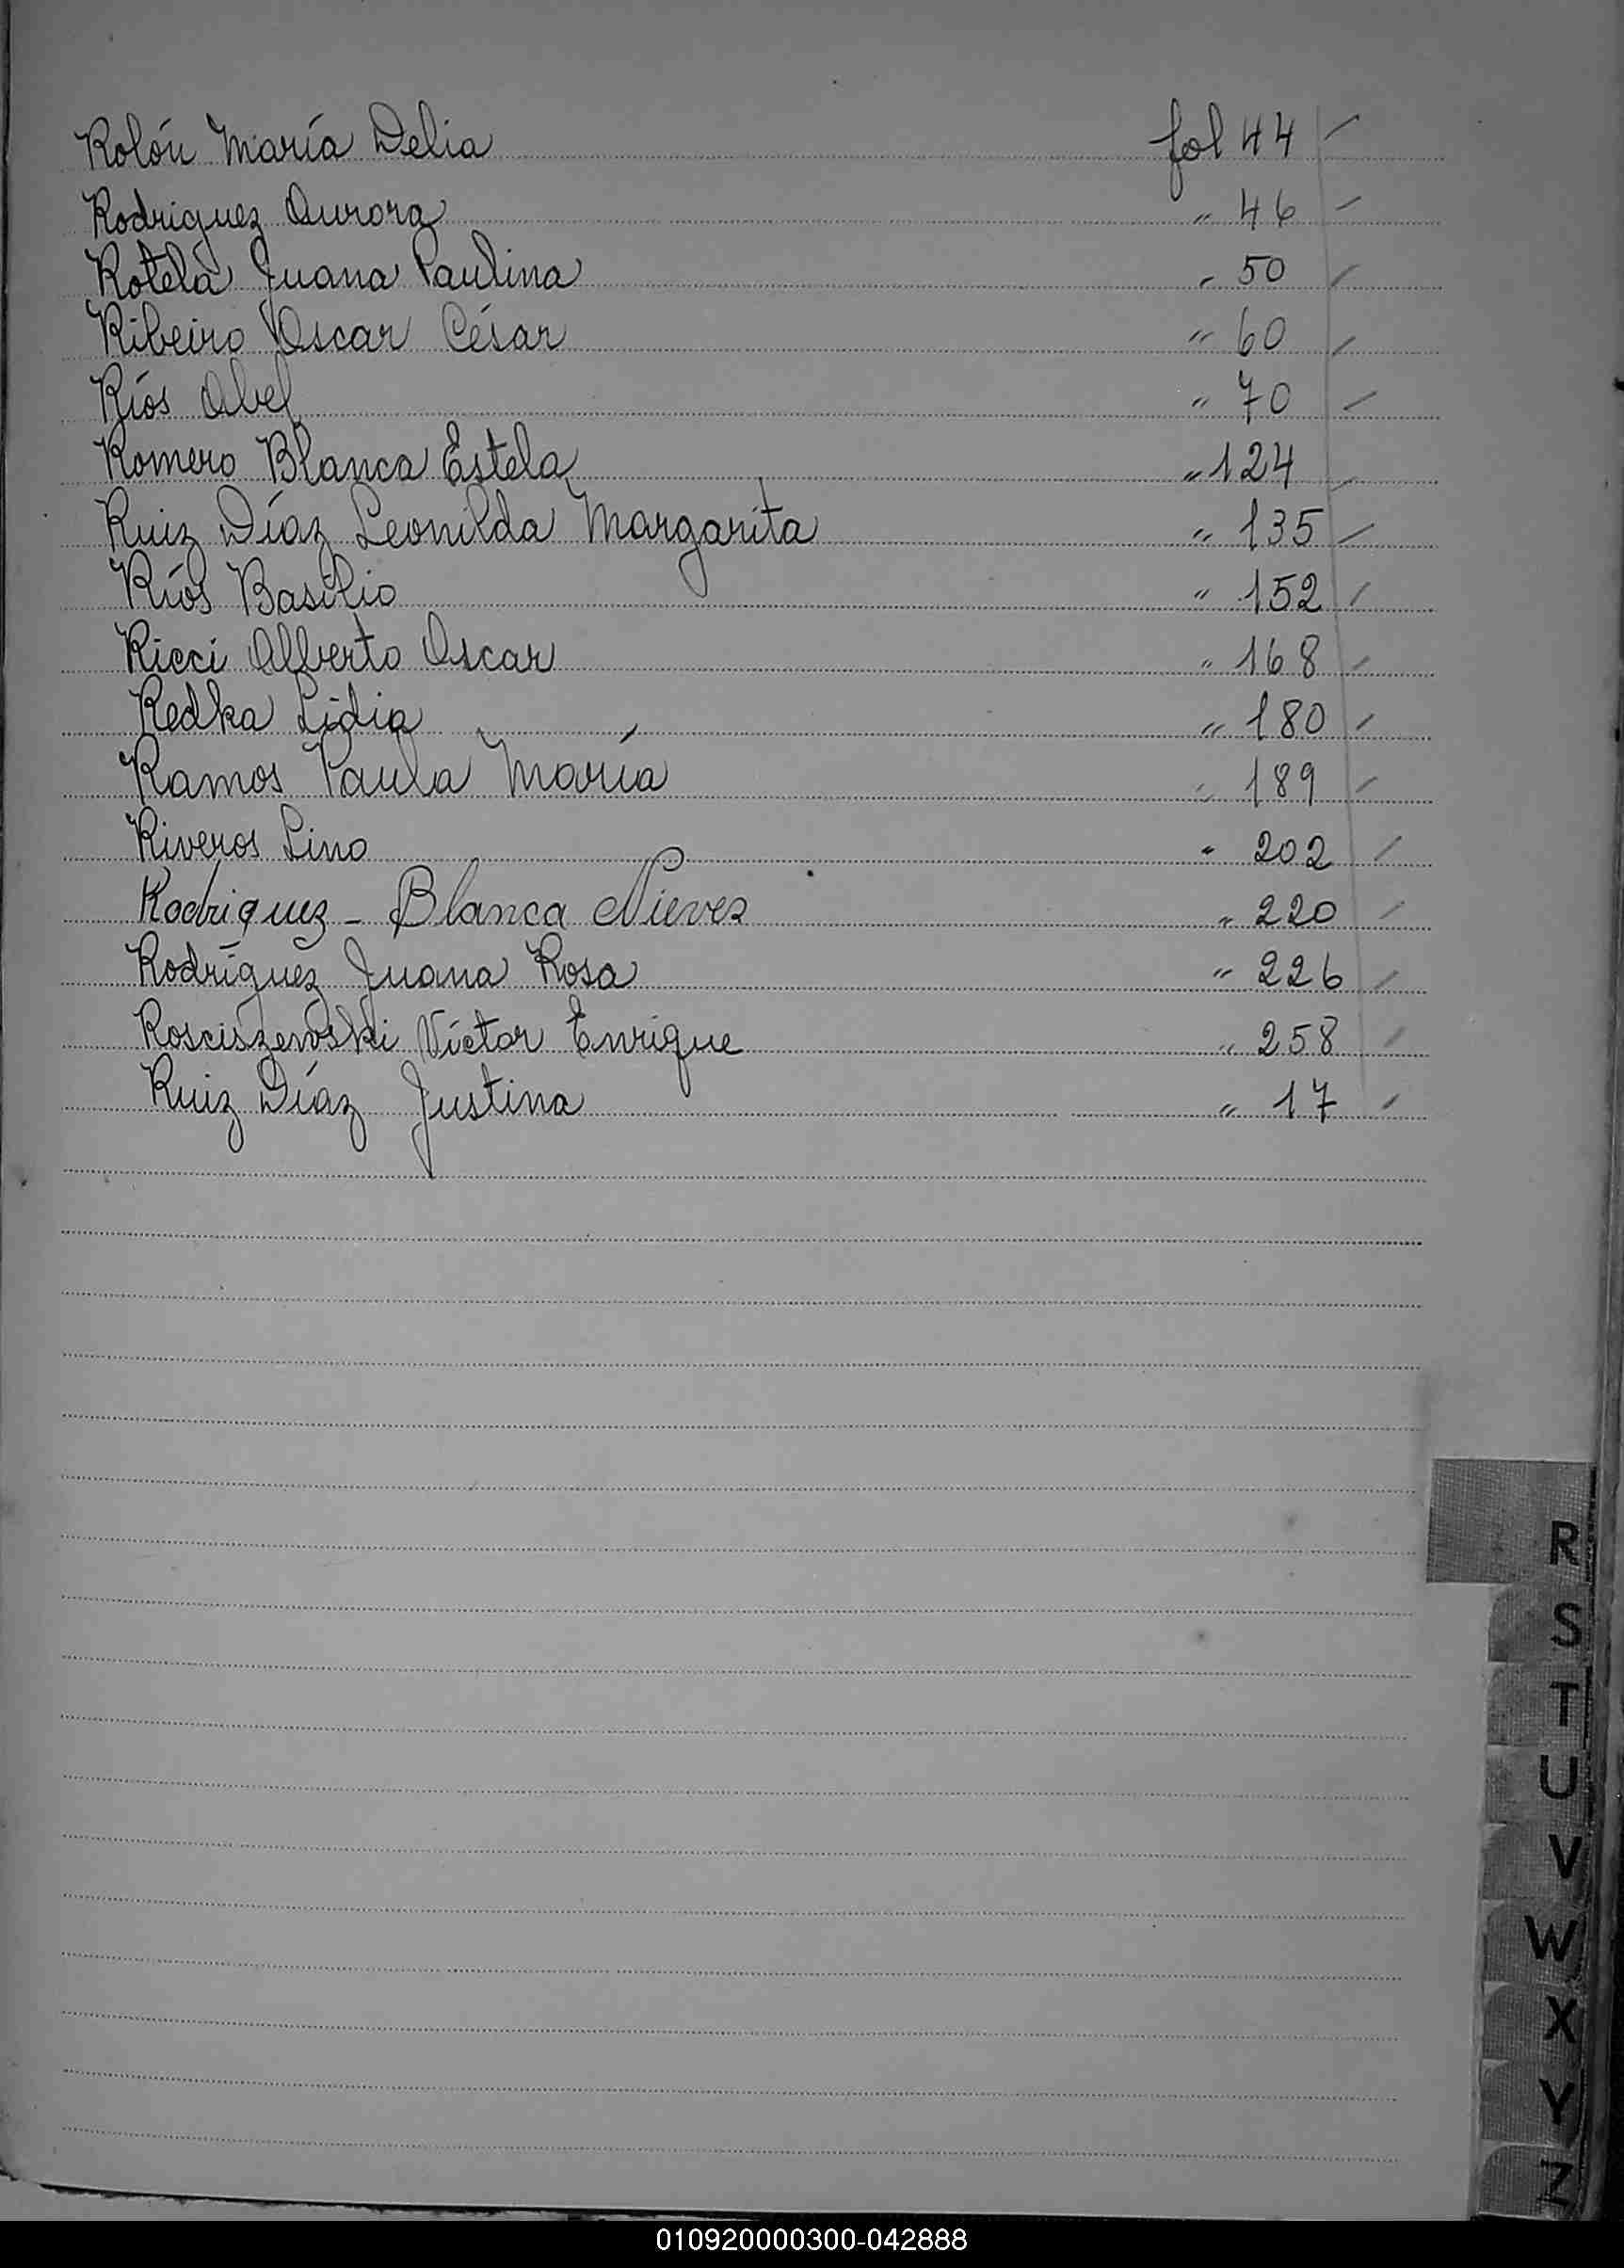 Rolón María Delia fol 44
Rodriguez Aurora " 46
Rotela Juana Paulina " 50
Ribeiro Oscar César " 60
Ríos Abel " 70
Romero Blanca Estela " 124
Ruiz Díaz Leonilda Margarita " 135
Ríos Basilio " 152
Ricci Alberto Oscar " 168
Redka Lidia " 180
Ramos Paula María " 189
Riveros Lino " 202
Rodriguez - Blanca Nieves " 220
Rodríguez Juana Rosa " 226
Rosciszewski Víctor Enrique " 258
Ruiz Díaz Justina " 17
R
S
T
U
V
W
X
Y
Z
010920000300-042888